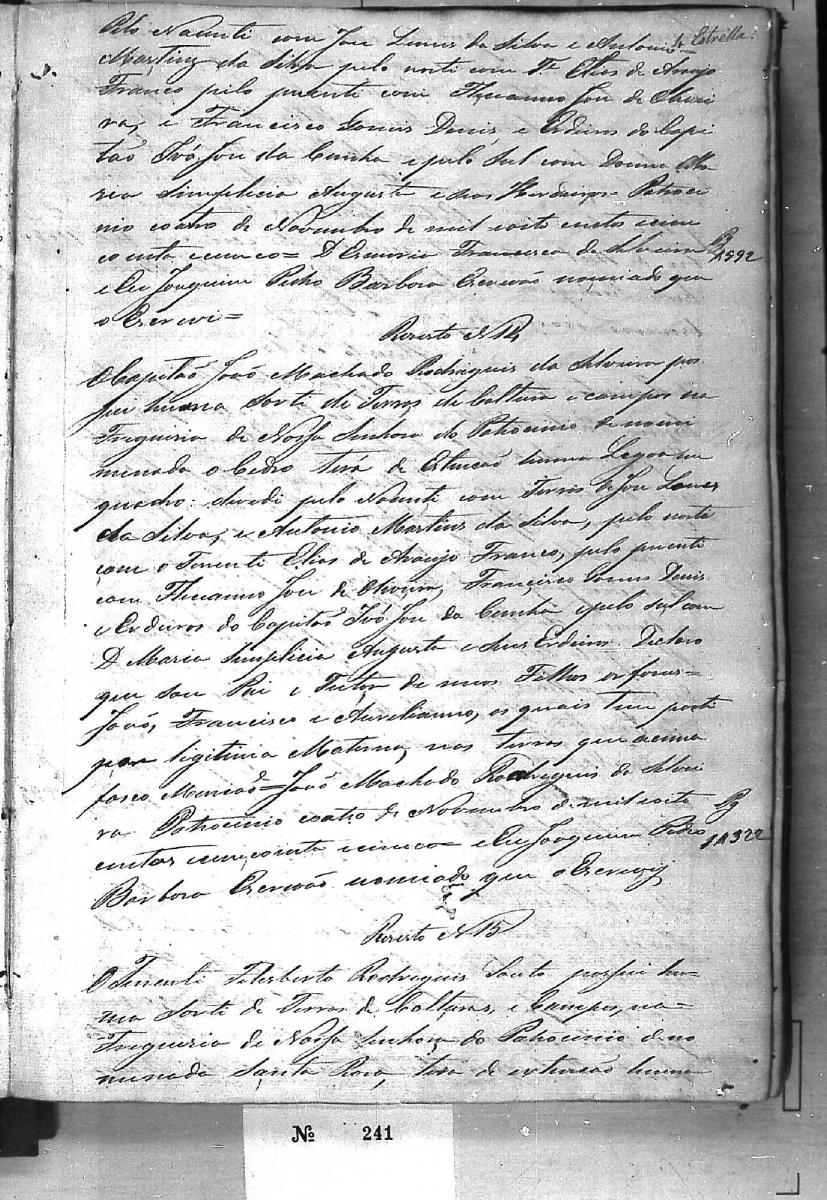 Pelo Nacente com Joze Lemes da Silva e Antonio
Estrella
Martins da Silva pelo norte com Te. Elias de Araujo
Franco pelo puente com Thucanno Joze de Olivei
ra, e Francisco Gomes Denis, e Erdeiros do Capi
tão Ivó Joze da Cunha e pelo Sul com Donna Ma
ria Simplicia Augusta e seos Herdeiros= Patroci
nio coatro de Novembro de mil oito centos e cin
coenta e cinco= D Francisca da Silveira Pg
1992
e Eu Joaquim Pedro Barboza Escrivão nomiado que
o Escrevi=
Rezisto N 14
O Capitão João Machado Rodrigues da Silveira pos
sue huma sorte de Terras de Coltura e campos na
Freguezia de Nossa Senhora do Patrocinio de nomi
minada o Cedro terá de Estenção huma Legoa em
quadro: devedi pelo Nacente com Terras de Joze Lemes
da Silva, e Antonio Martins da Silva, pelo norte
com o Tenente Elias de Araujo Franco, pelo puente
com Thucanno Joze de Oliveira, Francisco Gomes Denis
e Erdeiros do Capitão Ivó Joze da Cunha e pelo Sul com
D Maria Simplicia Augusta e Seus Erdeiros. Declaro
que sou Pai e Tutor de meus Filhos orfons=
João, Francisco e Aurelianno, os quais tem parte
por legitima Materna, nas terras que acima
faço Menção= João Machado Rodrigues da Silvei
ra Patrocinio coatro de Novembro de mil oito
Pg
centos e cincoenta e cinco= e Eu Joaquim Pedro
11322
Barboza Escrivão nomiado que o Escrevy
Rezisto N 15
O Tenente Felesberto Rodrigues Souto possui hu
ma Sorte de Terras de Colturas, e Campos, na=
Freguezia de Nossa Senhora do Patrocinio deno
minada Santa Roza, terá de extenção huma
Nº 241